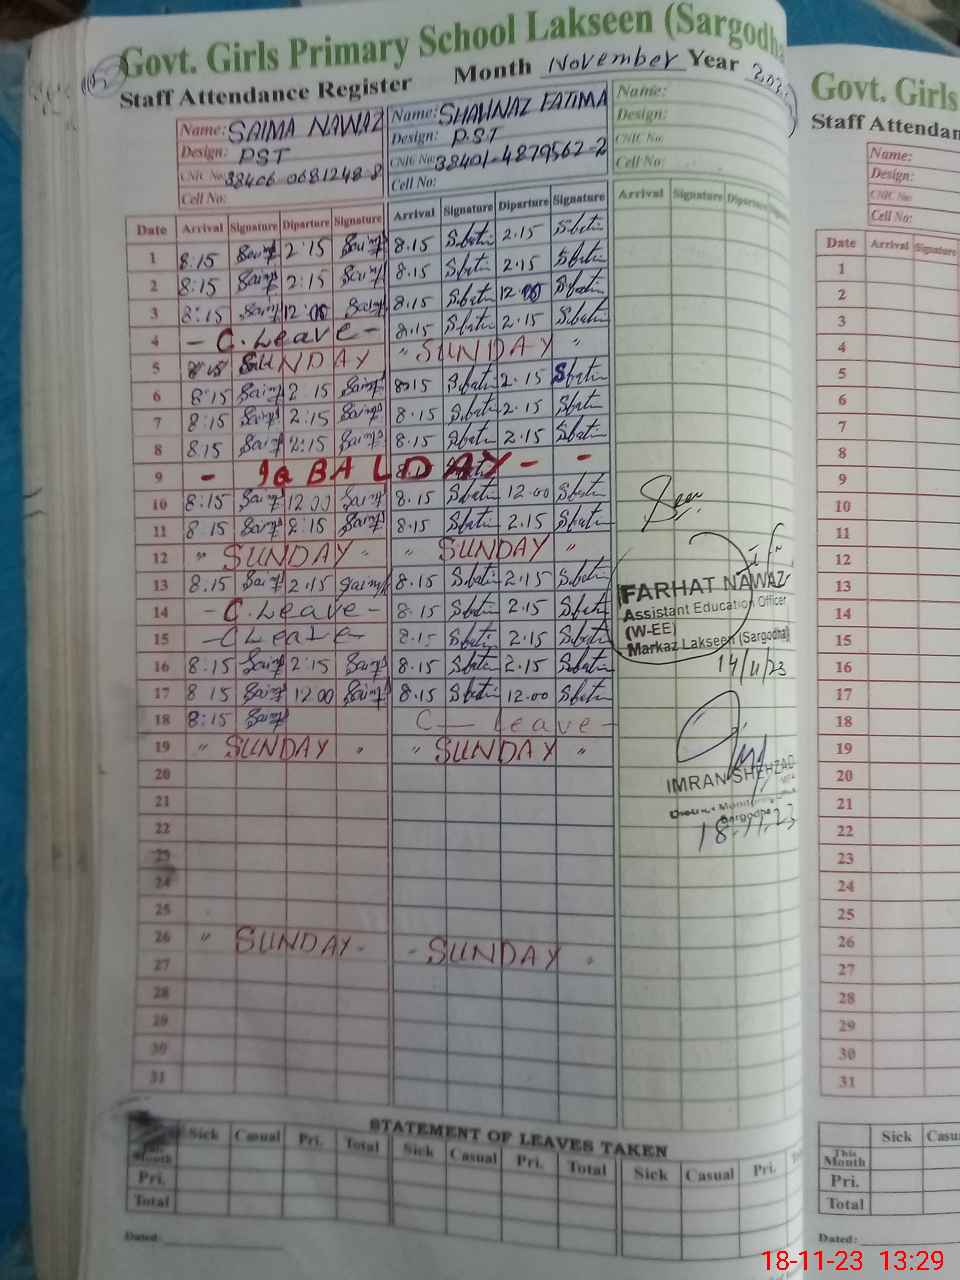 Govt. Girls Primary School Lakseen (Sargodh
Staff Attendance Register Month November Year
Name: SAIMA NAWAZ Name: SHAHNAZ FATIMA Name:
Design: PST Design: PST Design:
CNIC No: 38406-0681248-8 CNIC No: 38401-4879562-2 CNIC No:
Cell No: Cell No: Cell No:
Date Arrival Signature Diparture Signature Arrival Signature Diparture Signature Arrival Signature Diparture
1 8:15 2:15 8.15 2.15
2 8:15 2:15 8.15 2.15
3 8:15 12:00 8.15 12.00
4 - C. Leave - 8.15 2.15
5 SUNDAY " SUNDAY "
6 8:15 2:15 8.15 2.15
7 8:15 2:15 8.15 2.15
8 8:15 2:15 8.15 2.15
9 - IQBAL DAY - -
10 8:15 12:00 8.15 12.00
11 8:15 2:15 8.15 2.15
12 " SUNDAY " " SUNDAY "
13 8.15 2.15 8.15 2.15
14 - C. Leave - 8.15 2.15
15 - C Leave - 8.15 2.15
16 8:15 2:15 8.15 2.15
17 8:15 12:00 8.15 12.00
18 8:15 C - Leave -
19 " SUNDAY " " SUNDAY "
20
21
22
23
24
25
26 " SUNDAY - - SUNDAY "
27
28
29
30
31
Seen
FARHAT NAWAZ
Assistant Education Officer
(W-EE)
Markaz Lakseen (Sargodha)
14/11/23
IMRAN SHEHZAD
Sargodha
18.11.23
STATEMENT OF LEAVES TAKEN
Sick Casual Pri. Total Sick Casual Pri. Total Sick Casual Pri.
Month
Pri.
Total
Dated:
Govt. Girls
Staff Attendan
Name:
Design:
CNIC No:
Cell No:
Date Arrival Signature
1
2
3
4
5
6
7
8
9
10
11
12
13
14
15
16
17
18
19
20
21
22
23
24
25
26
27
28
29
30
31
Sick Casu
This Month
Pri.
Total
Dated:
18-11-23 13:29